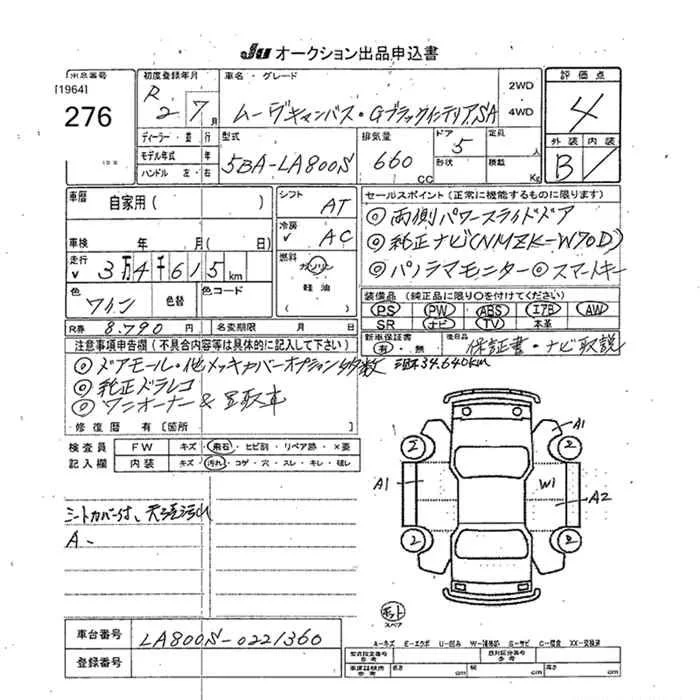 JU オークション出品申込書
出品番号
[1964]
276
初度登録年月
R2 7月
車名・グレード
ムーヴキャンバス・GブラックインテリアSA
2WD
・
4WD
評価点
4
外装 内装
B
ディーラー・並行
モデル年式 年
ハンドル 左・右
型式
5BA-LA800S
排気量
660 CC
ドア
5
形状
定員
人
積載
Kg
車歴
自家用( )
車検 年 月( 日)
走行
√ 3万4千615 km
色
ワイン
色替
カラーコード
R券 8,790 円
名変期限 月 日
シフト
AT
冷房
√ AC
燃料
ガソリン
軽油
( )
セールスポイント(正常に機能するものに限ります)
◎両側パワースライドドア
◎純正ナビ(NMZK-W70D)
◎パノラマモニター◎スマートキー
装備品(純正品に限り○を付けてください)
PS PW ABS エアB AW
SR ナビ TV 本革
新車保証書
有・無
後日品
保証書・ナビ取説
34,640km
注意事項申告欄(不具合内容等は具体的に記入して下さい)
◎ドアモール・他メッキカバーオプション多数
◎純正ドラレコ
◎ワンオーナー&買取車
修復歴 有〔箇所 〕
検査員
記入欄
FW キズ・飛石・ヒビ割・リペア跡・×要
内装 キズ・汚れ・コゲ・穴・スレ・キレ・破レ
シートカバー付、天張汚れ
A、
A1
2
2
A1
W1
A2
2
2
スペア
車台番号
LA800S-0221360
登録番号
A-キズ E-エクボ U-凹み W-補修跡 S-サビ C-腐食 XX-交換済
型式指定番号
参考
類別区分番号
参考
車庫証明用
参考
長さ cm
幅 cm
高さ cm